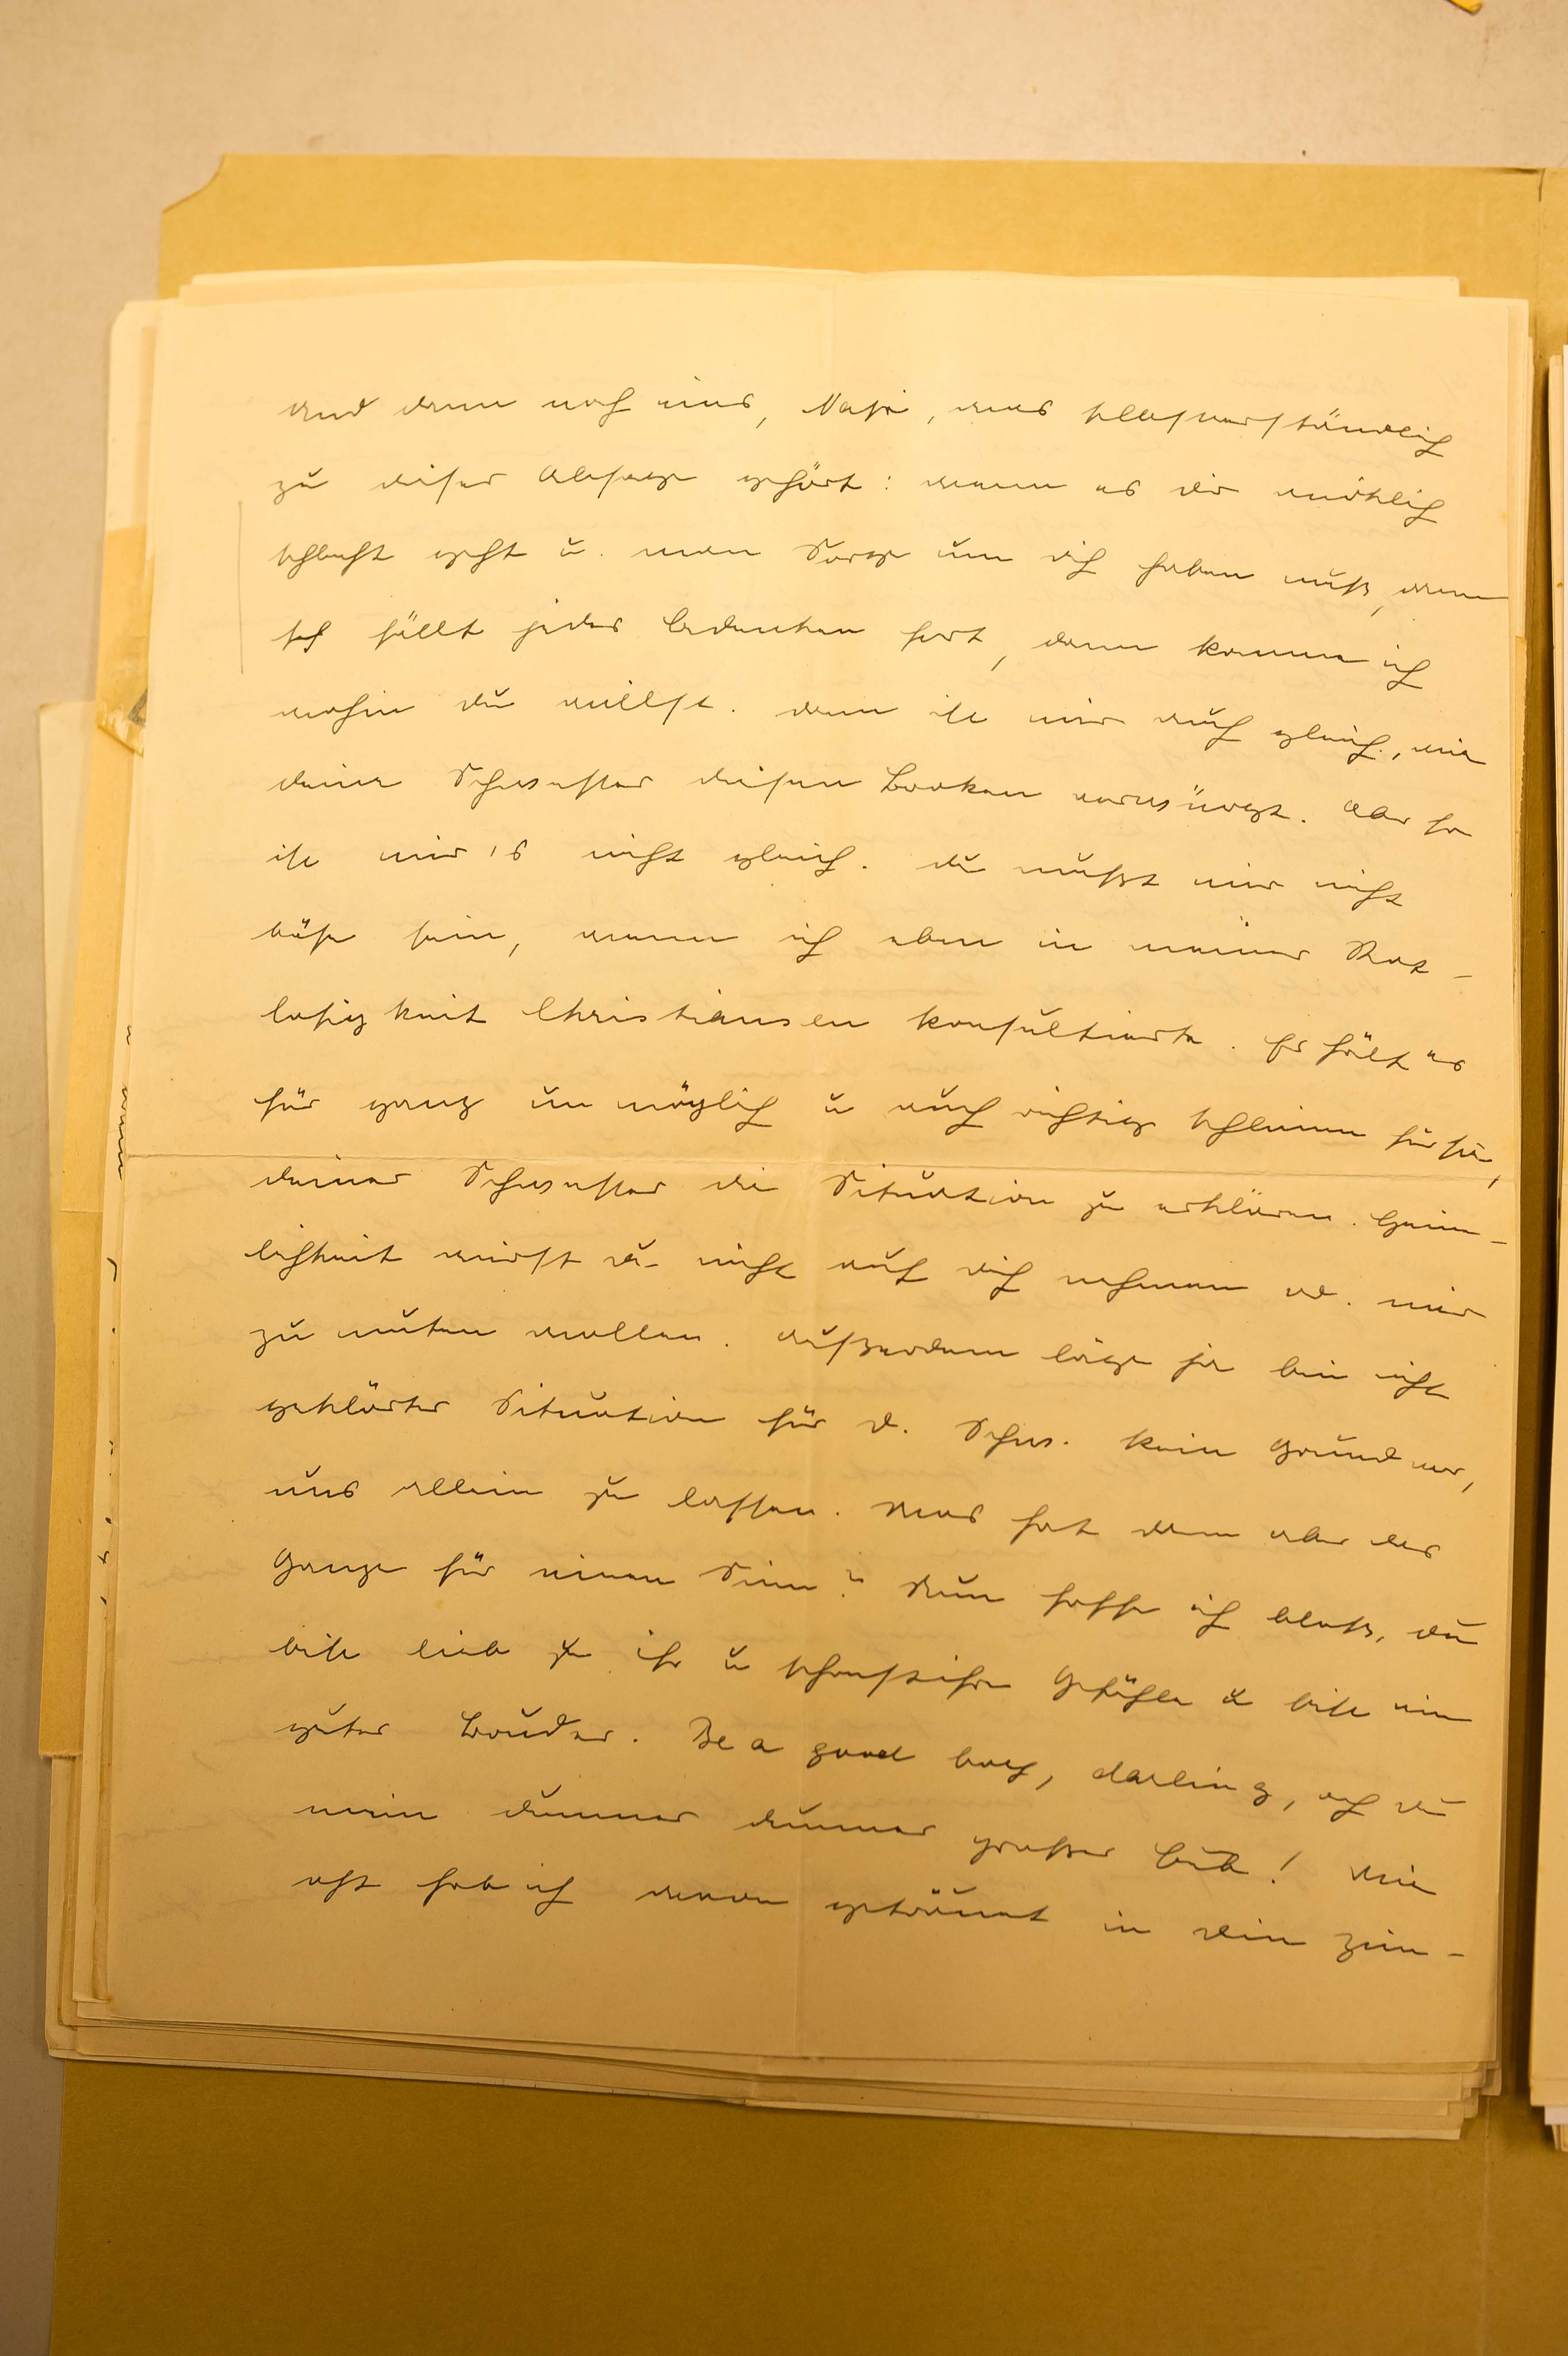 und dann noch eins, Nasi, was selbstverständlich
zu dieser Absage gehört: wenn es dir wirklich
schlecht geht u. man Sorge um dich haben muß, dann
fällt jedes Bedenken fort, dann komme ich
wohin du willst. Dann ist mir auch gleich, wie
deine Schwester diesen Brocken verwürgt. Aber so
ist mir es nicht gleich. Du mußt mir nicht
böse sein, wenn ich eben in meiner Rat-
losigkeit Christiansen konsultierte. Er hält es
für ganz unmöglich u auch richtig schlimm für sie,
deiner Schwester die Situation zu erklären. Heim-
lichkeit wirst du nicht auf dich nehmen od. mir
zu muten wollen. Außerdem läge ja bei nicht
geklärter Situation für d. Schw. kein Grund vor,
uns allein zu lassen. Was hat dann aber das
Ganze für einen Sinn? Nun hoffe ich bloß, du
bist lieb zu ihr u schonst ihre Gefühle u bist ein
guter Bruder. Be a good boy, darling, ach du
mein dummer dummer großer Bub! Wie
oft hab ich davon geträumt in dein Zim-
u wenn